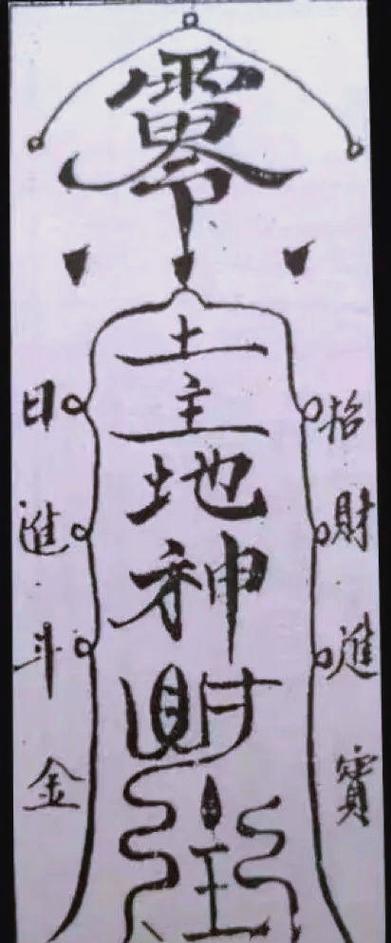 招財進寶
土主地神財
日進斗金